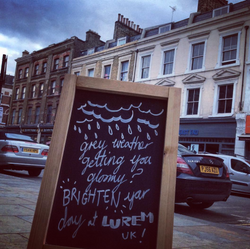 grey weather
getting you
gloomy?
BRIGHTEN your
day at LUREM
UK!